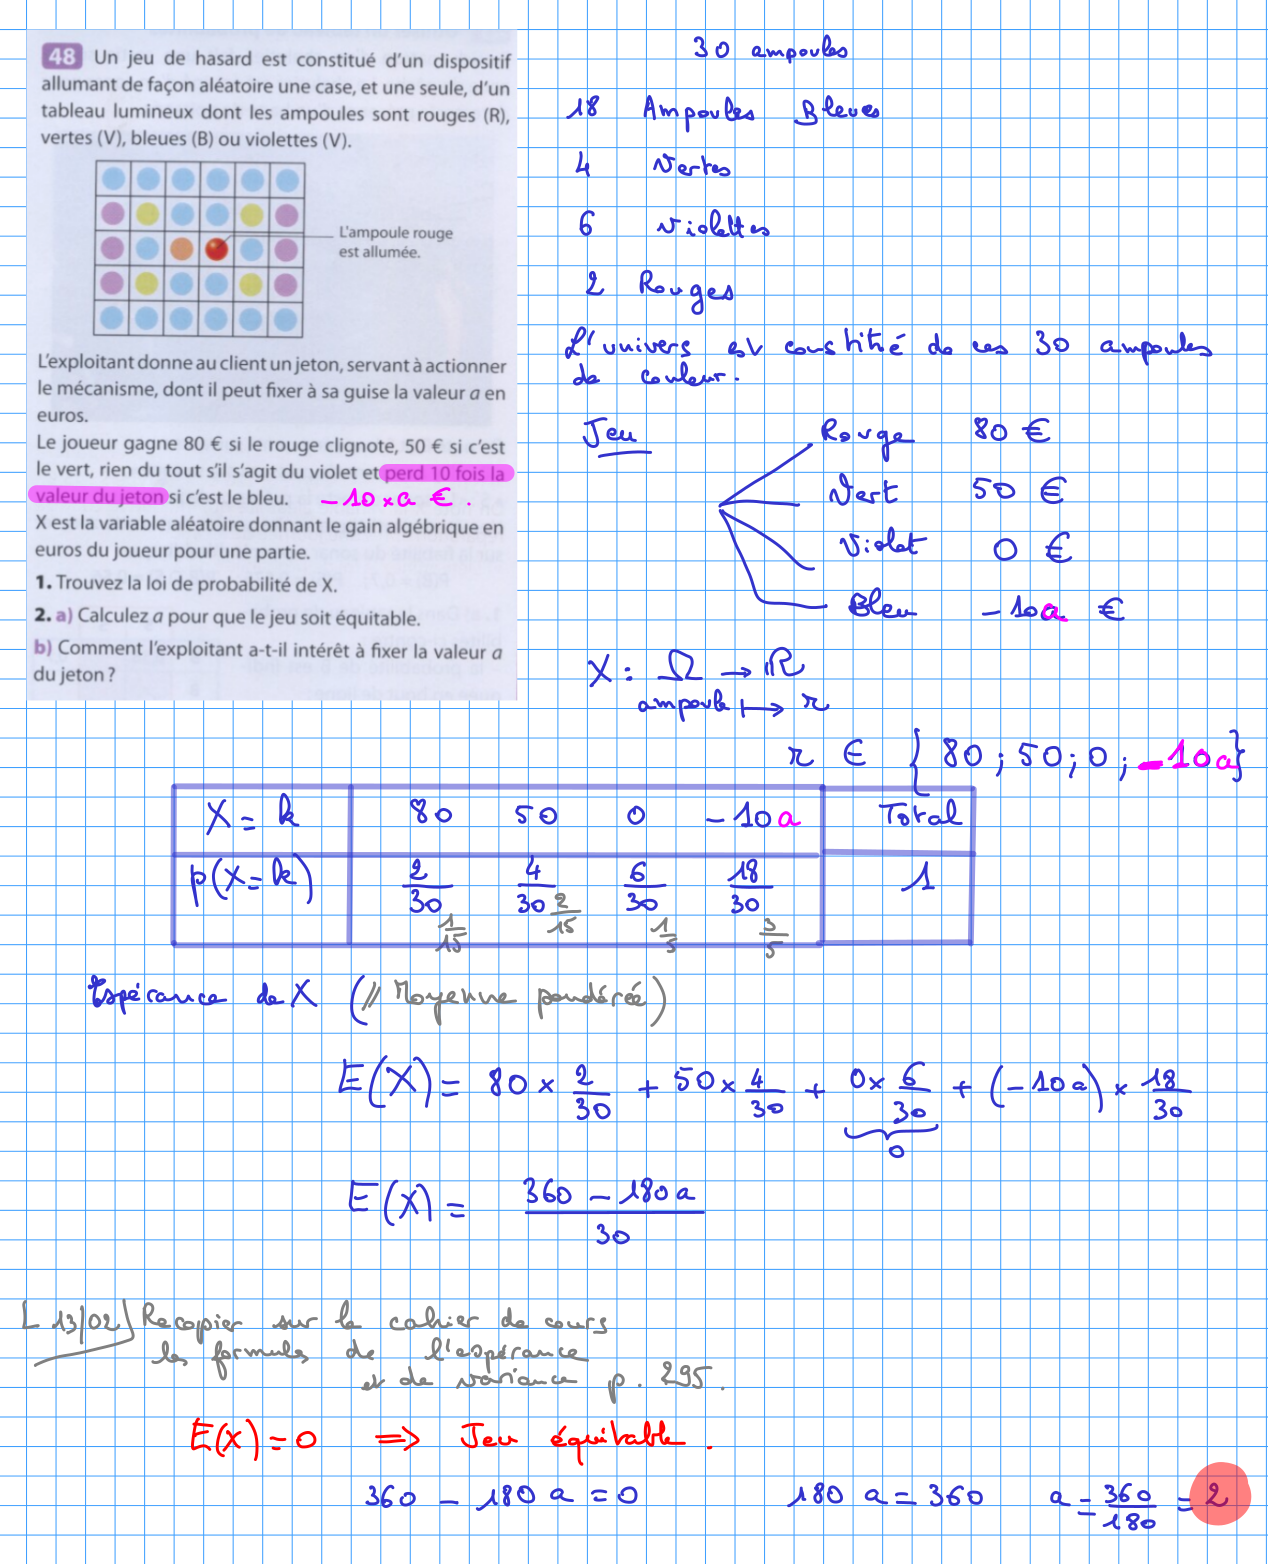 48 Un jeu de hasard est constitué d'un dispositif
allumant de façon aléatoire une case, et une seule, d'un
tableau lumineux dont les ampoules sont rouges (R),
vertes (V), bleues (B) ou violettes (V).
L'ampoule rouge
est allumée.
L'exploitant donne au client un jeton, servant à actionner
le mécanisme, dont il peut fixer à sa guise la valeur a en
euros.
Le joueur gagne 80 € si le rouge clignote, 50 € si c'est
le vert, rien du tout s'il s'agit du violet et perd 10 fois la
valeur du jeton si c'est le bleu. -10×a €.
X est la variable aléatoire donnant le gain algébrique en
euros du joueur pour une partie.
1. Trouvez la loi de probabilité de X.
2. a) Calculez a pour que le jeu soit équitable.
b) Comment l'exploitant a-t-il intérêt à fixer la valeur a
du jeton ?
30 ampoules
18 Ampoules Bleues
4 Vertes
6 Violettes
2 Rouges
L'univers est constitué de ces 30 ampoules
de couleur.
Jeu
Rouge 80 €
Vert 50 €
Violet 0 €
Bleu -10a €
X : Ω → ℝ
ampoule ↦ r
r ∈ {80 ; 50 ; 0 ; -10a}
X = k 80 50 0 -10a Total
p(X=k) 2/30 4/30 6/30 18/30 1
1/15 2/15 1/5 3/5
Espérance de X (// Moyenne pondérée)
E(X) = 80 × 2/30 + 50 × 4/30 + 0 × 6/30 + (-10a) × 18/30
0
E(X) = (360 - 180a)/30
L 13/02 Recopier sur le cahier de cours
les formules de l'espérance
et de variance p. 295.
E(X) = 0 ⇒ Jeu équitable.
360 - 180 a = 0 180 a = 360 a = 360/180 = 2